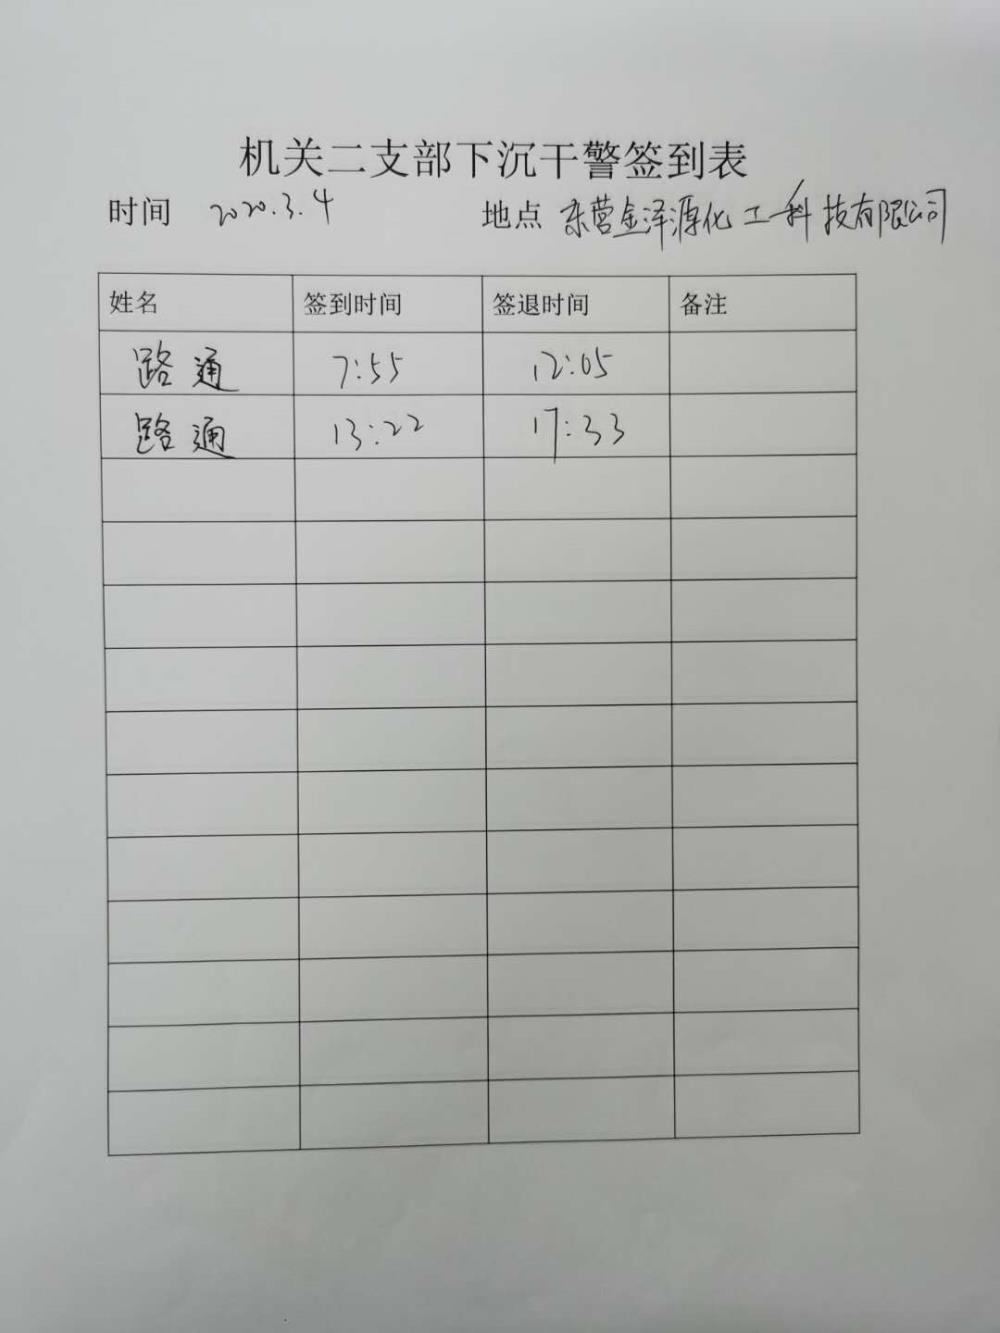 机关二支部下沉干警签到表
时间 2020.3.4 地点 东营金泽源化工科技有限公司
姓名 签到时间 签退时间 备注
路通 7:55 12:05
路通 13:22 17:33